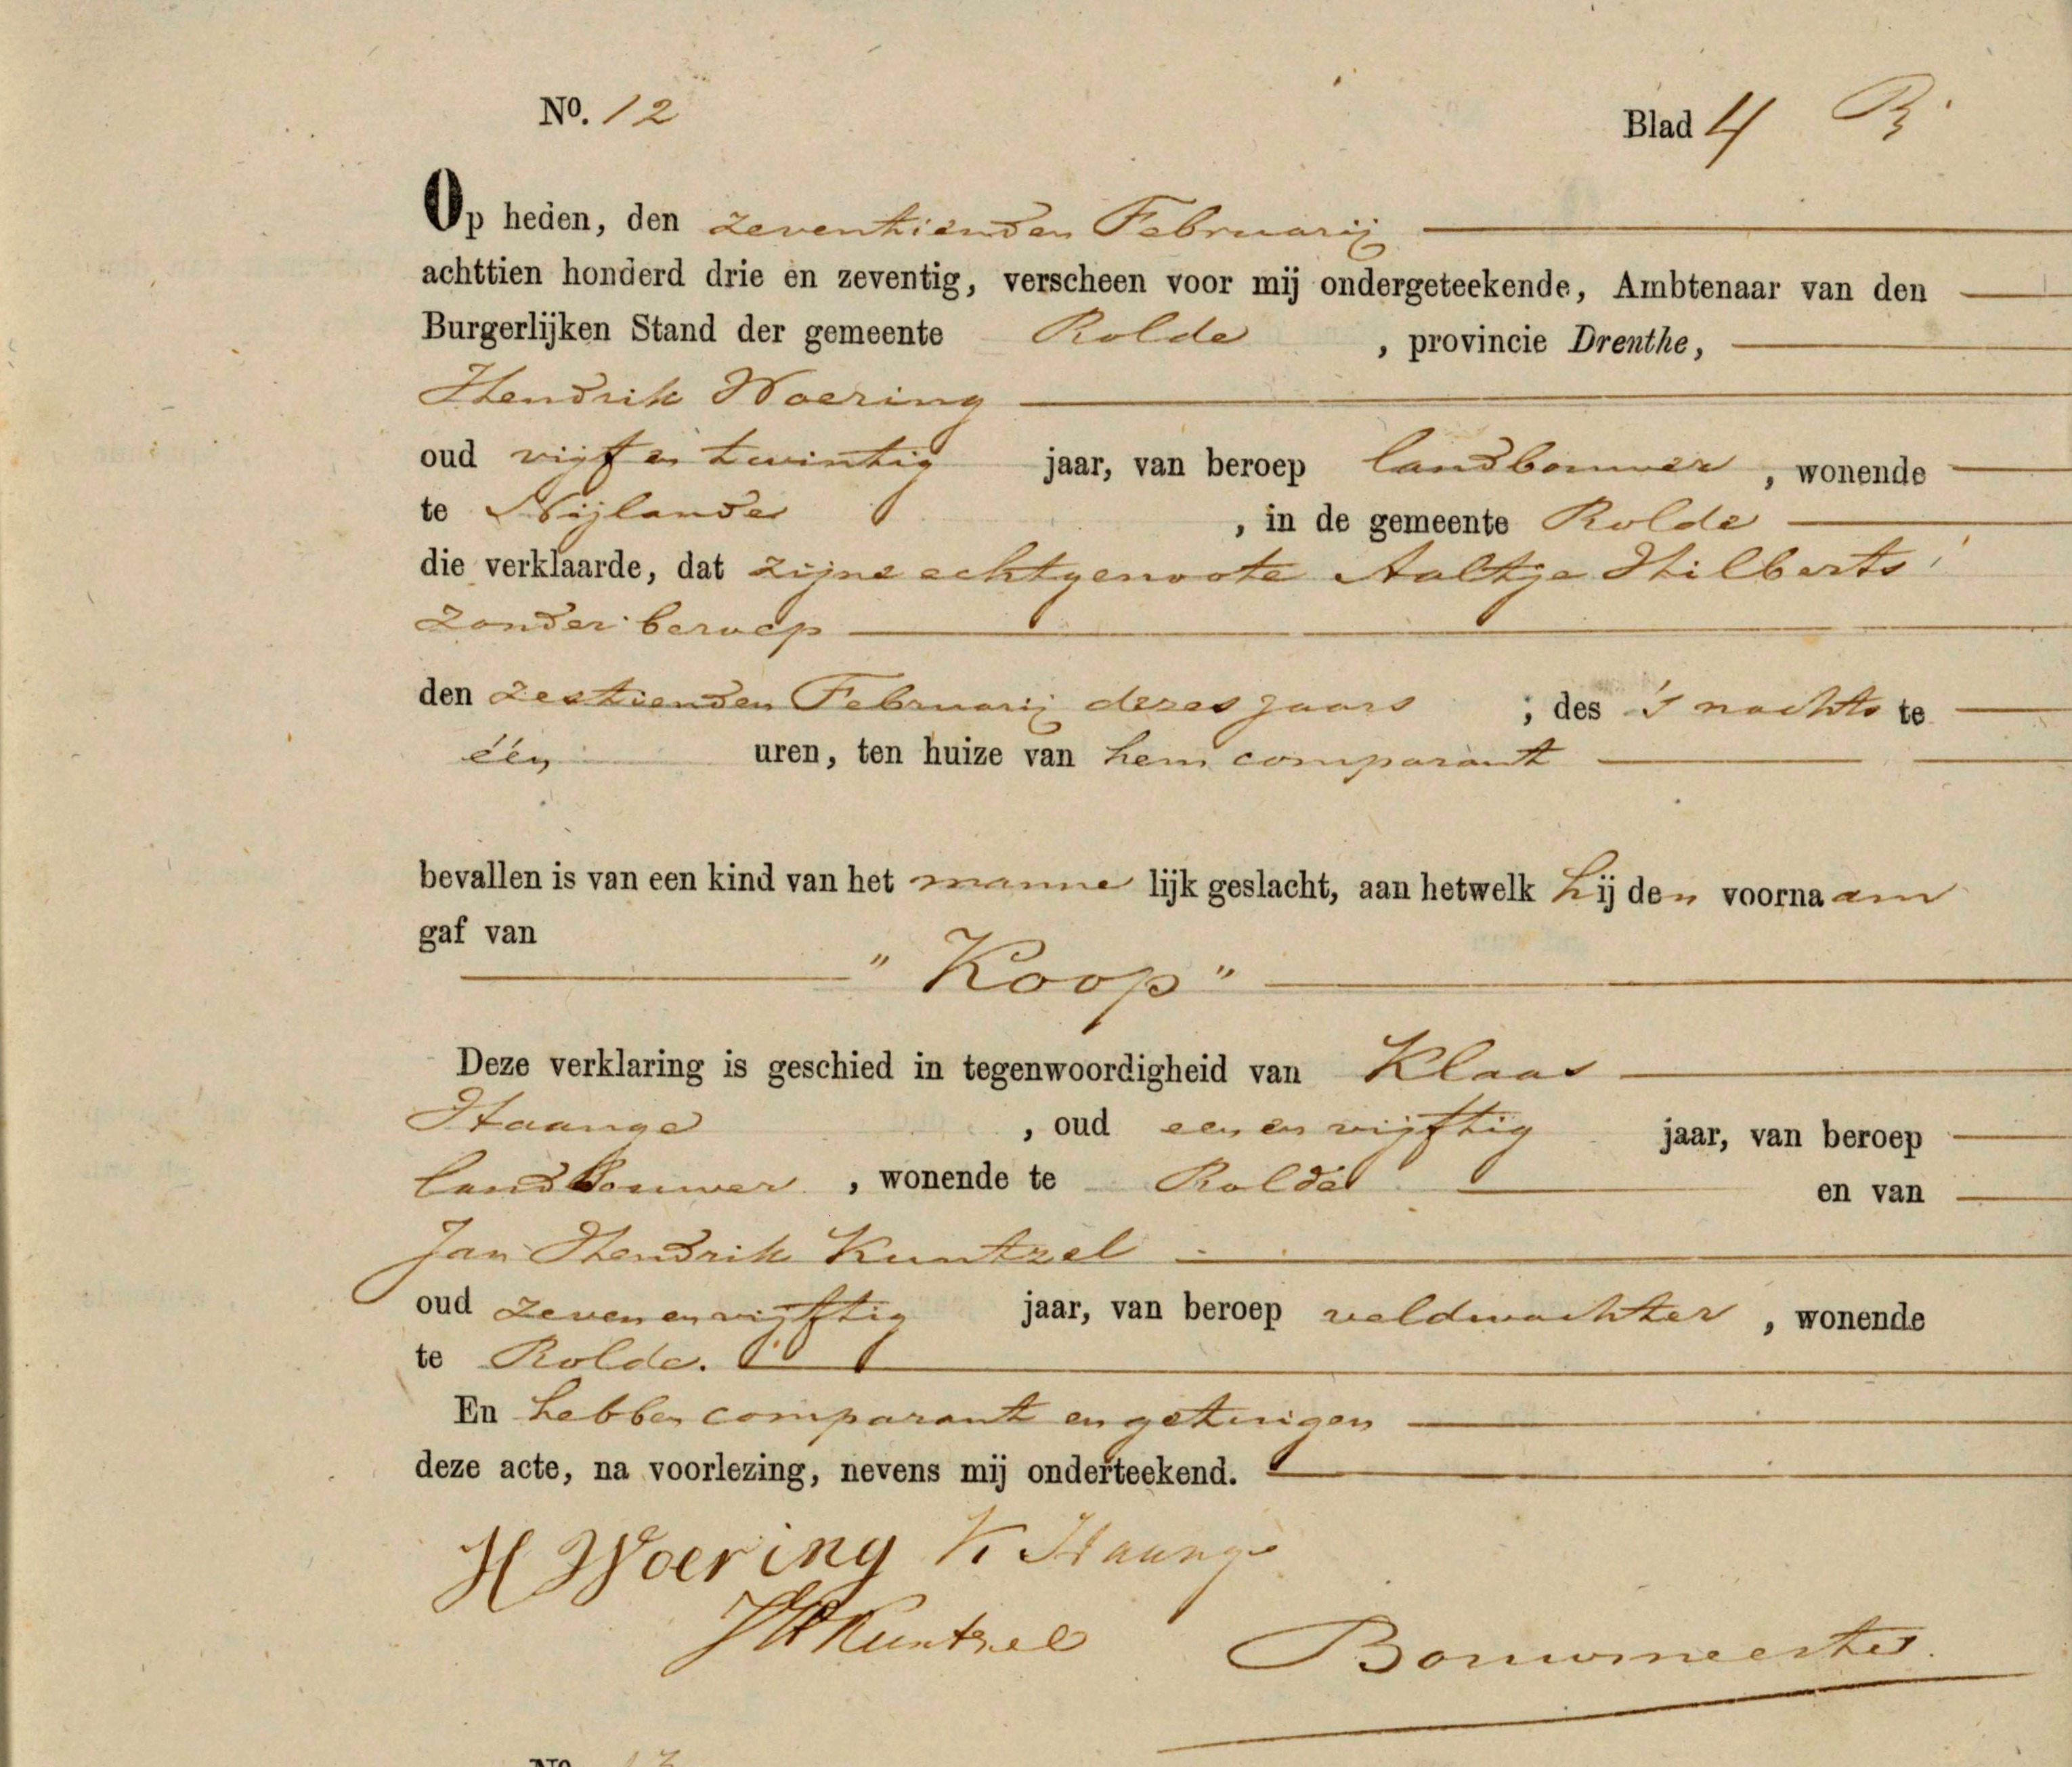 No. 12 Blad 4 B.
Op heden, den zeventienden Februarij
achttien honderd drie en zeventig, verscheen voor mij ondergeteekende, Ambtenaar van den
Burgerlijken Stand der gemeente Rolde, provincie Drenthe,
Hendrik Woering
oud vijf en twintig jaar, van beroep landbouwer, wonende
te Nijlande, in de gemeente Rolde
die verklaarde, dat zijne echtgenoote Aaltje Hilberts
zonder beroep
den zestienden Februarij dezes jaars; des 's nachts te
één uren, ten huize van hem comparant
bevallen is van een kind van het mannelijk geslacht, aan hetwelk hij den voornaam
gaf van
"Koop"
Deze verklaring is geschied in tegenwoordigheid van Klaas
Haange, oud een en vijftig jaar, van beroep
landbouwer, wonende te Rolde en van
Jan Hendrik Kuntzel
oud zeven en vijftig jaar, van beroep veldwachter, wonende
te Rolde.
En hebben comparant en getuigen
deze acte, na voorlezing, nevens mij onderteekend.
H Woering K Haange
JH Kuntzel Bouwmeester.
No. 13